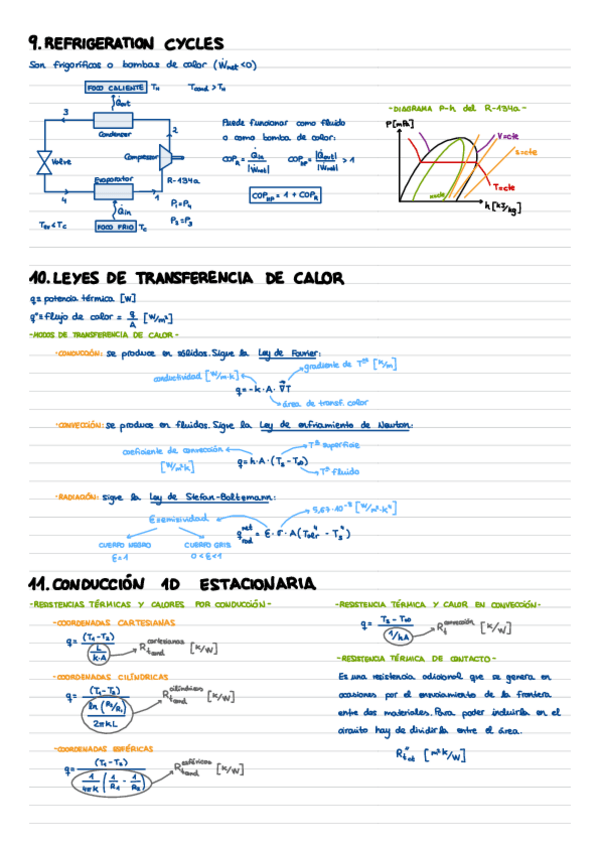 9. REFRIGERATION CYCLES
Son frigoríficos o bombas de calor (Ẇnet<0)
FOCO CALIENTE TH Tcond > TH
Q̇out
3
Condenser
2
Válve
Compressor
Evaporator
R-134a
4
1
Q̇in
P1=P4
P2=P3
Tev < TC
FOCO FRIO TC
Puede funcionar como fluido
o como bomba de calor:
COPR = Q̇in/|Ẇnet| COPHP = |Q̇out|/|Ẇnet| > 1
COPHP = 1 + COPR
-DIAGRAMA P-h del R-134a-
P[MPa]
v=cte
s=cte
x=cte
T=cte
h [kJ/kg]
10. LEYES DE TRANSFERENCIA DE CALOR
q = potencia térmica [W]
q"= flujo de calor = q/A [W/m²]
-MODOS DE TRANSFERENCIA DE CALOR-
-CONDUCCIÓN: se produce en sólidos. Sigue la Ley de Fourier:
gradiente de Tª [K/m]
conductividad [W/m·K]
q = -k · A · ∇T
área de transf. calor
-CONVECCIÓN: se produce en fluidos. Sigue la Ley de enfriamiento de Newton:
coeficiente de convección
[W/m²K]
Tª superficie
q = h · A · (Ts - T∞)
Tª fluido
-RADIACIÓN: sigue la Ley de Stefan-Boltzmann:
5,67·10⁻⁸ [W/m²·K⁴]
Exmisividad
CUERPO NEGRO
ε=1
CUERPO GRIS
0<ε<1
11. CONDUCCIÓN 1D ESTACIONARIA
-RESISTENCIAS TÉRMICAS Y CALORES POR CONDUCCIÓN-
-COORDENADAS CARTESIANAS
q = (T1-T2) / (L/(k·A)) Rtcond cartesianas [K/W]
-COORDENADAS CILÍNDRICAS
q = (T1-T2) / (ln(R2/R1)/(2πkL)) Rtcond cilíndricas [K/W]
-COORDENADAS ESFÉRICAS
q = (T1-T2) / (1/(4πk) (1/R1 - 1/R2)) Rtcond esféricas [K/W]
-RESISTENCIA TÉRMICA Y CALOR EN CONVECCIÓN-
q = (Ts - T∞) / (1/hA) Rt convección [K/W]
-RESISTENCIA TÉRMICA DE CONTACTO-
Es una resistencia adicional que se genera en
ocasiones por el
de la frontera
entre dos materiales. Para poder incluirla en el
circuito hay de dividirla entre el área.
[m²K/W]